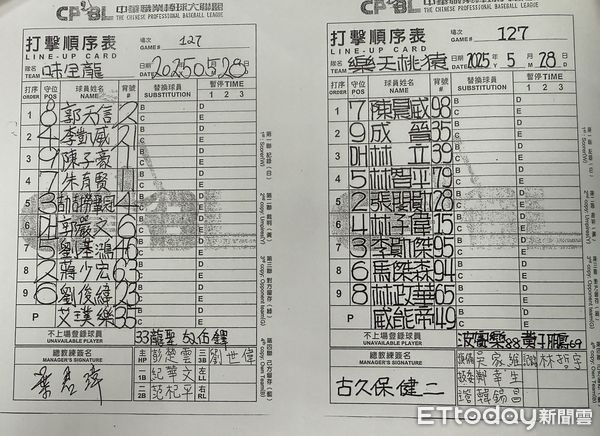 CPBL 中華職業棒球大聯盟
THE CHINESE PROFESSIONAL BASEBALL LEAGUE
打擊順序表
LINE-UP CARD
場次
GAME# 127
隊名
TEAM 味全龍
日期
DATE 2025 05 28
打序
ORDER
守位
POS
球員姓名
NAME
背號
#
替換球員
SUBSTITUTION
暫停 TIME
1 2 3
1 8 郭天信 2
2 4 李凱威 71
3 9 陳子豪 11
4 7 朱育賢
5 3
6
7 5 劉基鴻 46
8 2 蔣少宏 63
9 6 劉俊緯 23
P 艾璞樂 35
不上場登錄球員
UNAVAILABLE PLAYER
33龍聖
總教練簽名
MANAGER'S SIGNATURE
葉君璋
主HP 彭楚雲
3B 劉世偉
一1B 紀華文
左LL
二2B 范杞平
右RL
CPBL 中華職業棒球大聯盟
THE CHINESE PROFESSIONAL BASEBALL LEAGUE
打擊順序表
LINE-UP CARD
場次
GAME# 127
隊名
TEAM 樂天桃猿
日期
DATE 2025 Y 5 M 28 D
打序
ORDER
守位
POS
球員姓名
NAME
背號
#
替換球員
SUBSTITUTION
暫停 TIME
1 2 3
1 7 陳晨威 98
2 9 成晉 35
3 DH 林立 39
4 5 林智平 79
5 2 張閔勛 28
6 4 林子偉 15
7 3 李勛傑 95
8 6 馬傑森 94
9 8 林政華 65
P 威能帝 49
不上場登錄球員
UNAVAILABLE PLAYER
波賽樂88 黃子鵬69
總教練簽名
MANAGER'S SIGNATURE
古久保健二
吳家維
林哲宇
鄭幸生
韓錫昌
ETtoday新聞雲